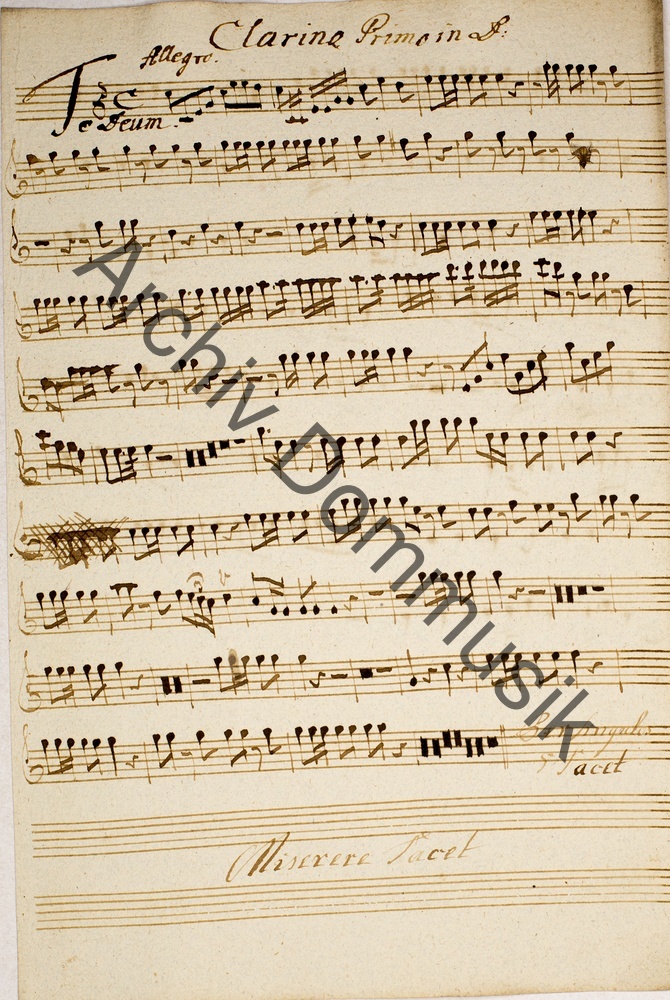 Clarino Primo in D:
Allegro.
Te Deum.
Per singulos
Tacet
Miserere Tacet
Archiv Dommusik